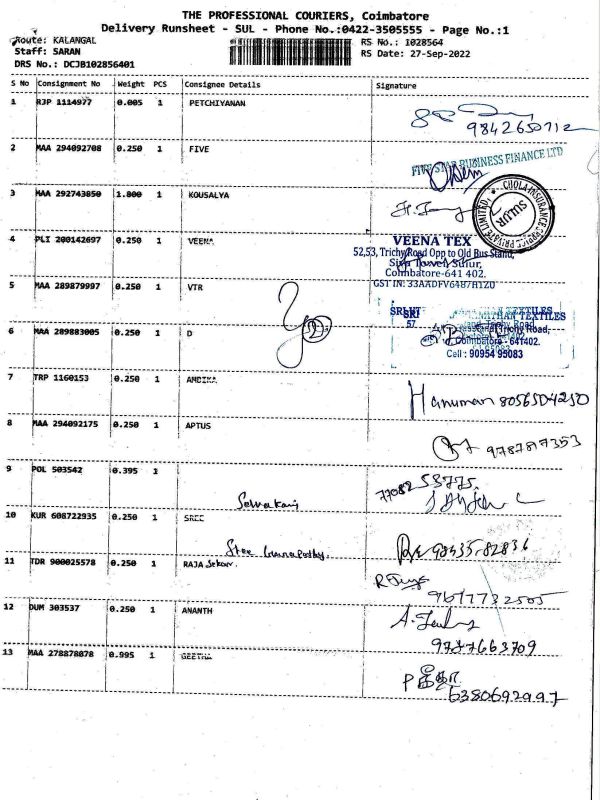 THE PROFESSIONAL COURIERS, Coimbatore
Delivery Runsheet - SUL - Phone No.:0422-3505555 - Page No.:1
Route: KALANGAL
RS No.: 1028564
Staff: SARAN
RS Date: 27-Sep-2022
DRS No.: DCJB102856401
S No Consignment No Weight PCS Consignee Details Signature
1 RJP 1114977 0.005 1 PETCHIYANAN
9842650712
2 MAA 294092708 0.250 1 FIVE
FIVE STAR BUSINESS FINANCE LTD
3 MAA 292743850 1.800 1 KOUSALYA
CHOLA INSURANCE PRIVATE LIMITED
SULUR
4 PLI 200142697 0.250 1 VEENA
VEENA TEX
52,53, Trichy Road Opp to Old Bus Stand,
Sulur,
Coimbatore-641 402.
5 MAA 289879997 0.250 1 VTR
GST IN: 33AADFV6487H1Z0
TEXTILES
6 MAA 289883005 0.250 1 D
2
Trichy Road,
Coimbatore - 641402.
Cell : 90954 95083
7 TRP 1160153 0.250 1 AMBIKA
Hanuman 8056504250
8 MAA 294092175 0.250 1 APTUS
9 POL 503542 0.395 1
Selvakani
10 KUR 608722935 0.250 1 SREE
Sree
98435-82836
11 TDR 900025578 0.250 1 RAJA Sekar.
12 DUM 303537 0.250 1 ANANTH
9747663709
13 MAA 278878078 0.995 1 GEETHA
6380692997